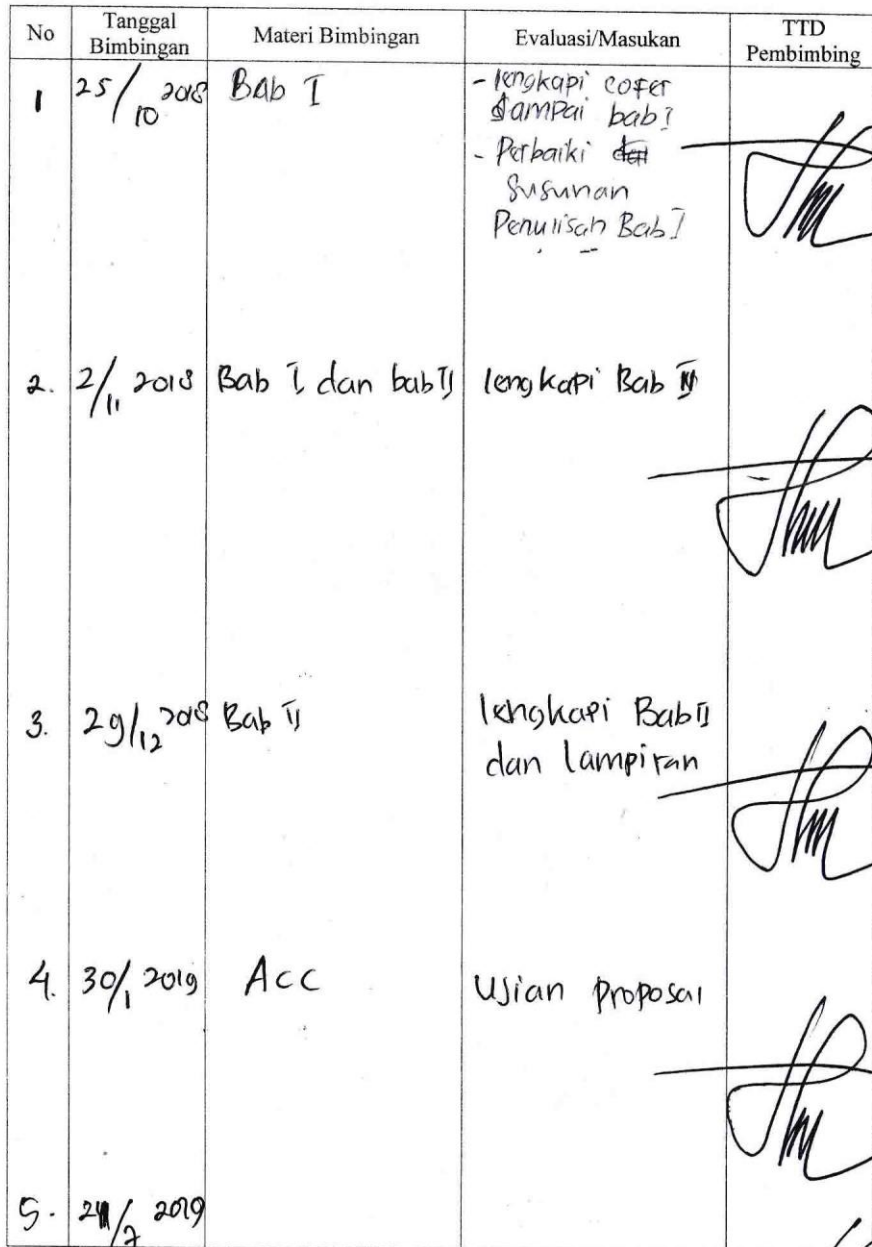 No Tanggal Bimbingan Materi Bimbingan Evaluasi/Masukan TTD Pembimbing
1 25/10 2018 Bab I - lengkapi cofer
sampai bab I
- Perbaiki
Susunan
Penulisan Bab I
2. 2/11 2018 Bab I dan bab II lengkapi Bab
3. 29/12 2018 Bab II lengkapi Bab II
dan lampiran
4. 30/1 2019 Acc Ujian proposal
5. /7 2019